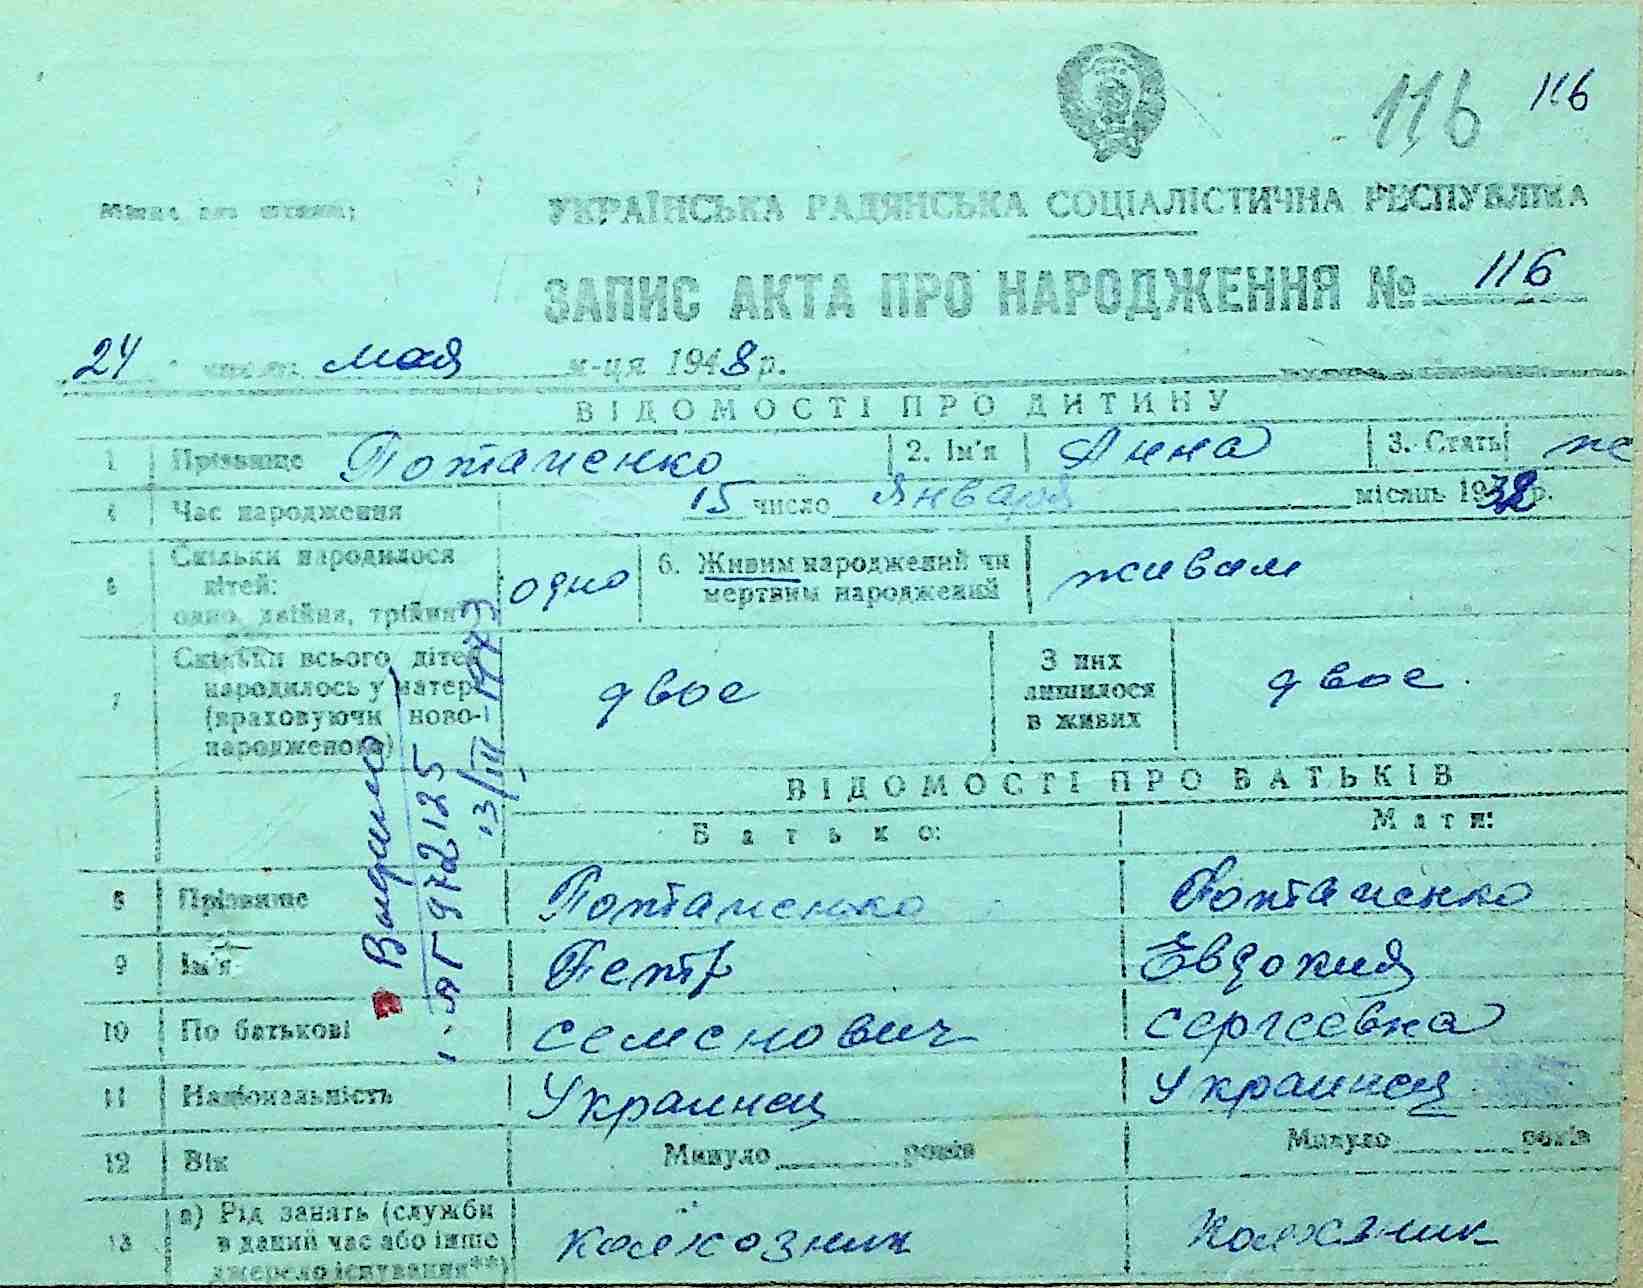 116 116
Місце для штампу
УКРАЇНСЬКА РАДЯНСЬКА СОЦІАЛІСТИЧНА РЕСПУБЛІКА
ЗАПИС АКТА ПРО НАРОДЖЕННЯ № 116
24 числа мая м-ця 1948 р.
ВІДОМОСТІ ПРО ДИТИНУ
1 Прізвище Потапенко 2. Ім'я Анна 3. Стать ж
4 Час народження 15 число января місяць 1938 р.
5 Скільки народилося дітей: одно, двійня, трійня одно 6. Живим народжений чи мертвим народжений живым
7 Скільки всього дітей народилось у матері (враховуючи новонародженого) двое З них лишилося в живих двое
ВІДОМОСТІ ПРО БАТЬКІВ
Батько: Мати:
8 Прізвище Потапенко Потапенко
9 Ім'я Петр Евдокия
10 По батькові Семенович Сергеевна
11 Національність Украинец Украинец
12 Вік Минуло років Минуло років
13 а) Рід занять (служби в даний час або інше джерело існування**) колхозник колхозник
Выдано
І-ЯГ 972125
13/III-1973